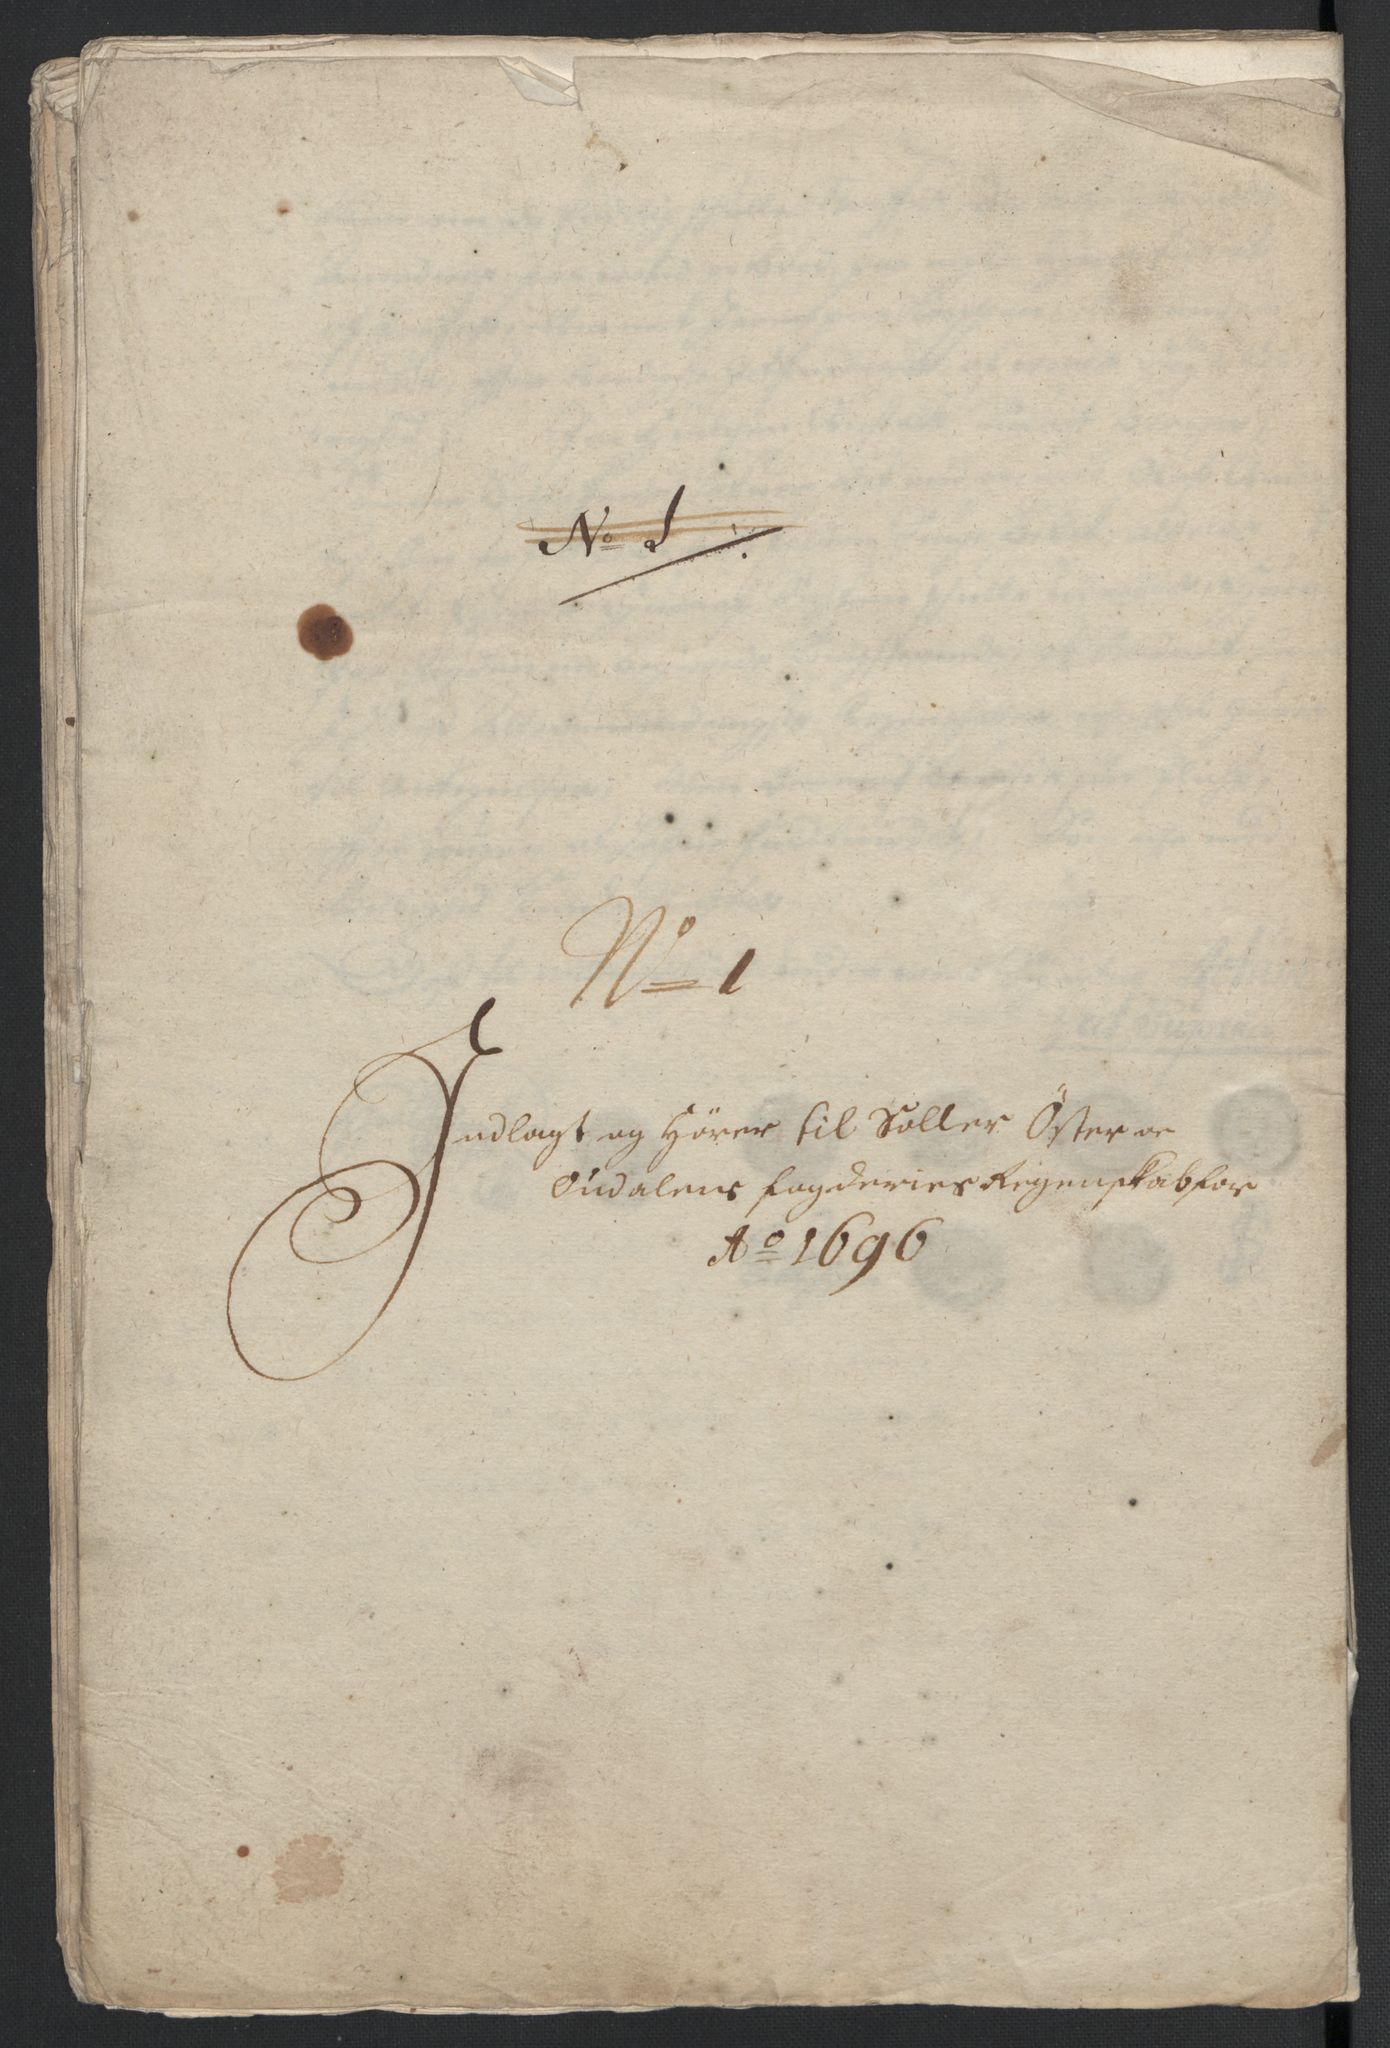 No 1
No 1
Indlagt og Hörer til Soller Öster oc
Oudalens fogderies Regenskab for
Ao 1696